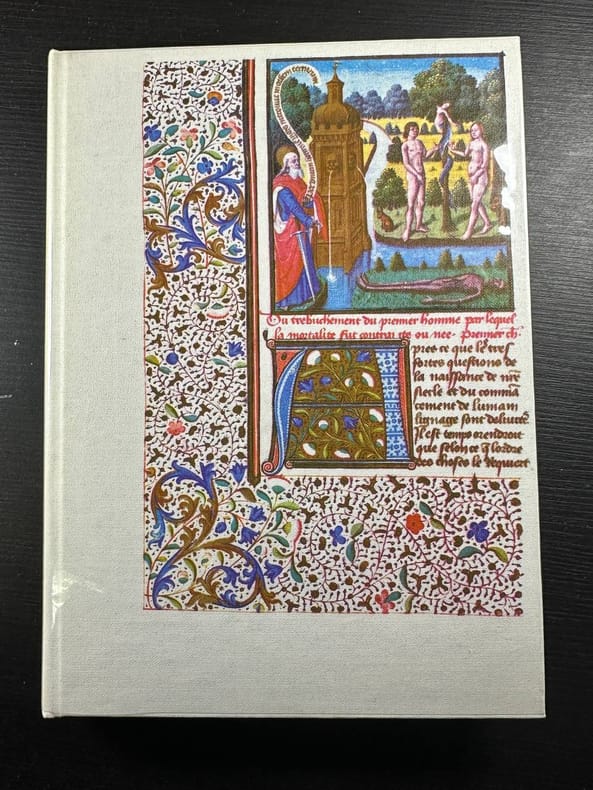 Du trebuchement du premier homme par lequel
la mortalite fut contraicte ou nee. Premier ch.
Apres ce que les tres
fortes questions de
la naissance de nr̄e
siecle et du commā
cement de lumain
lignage sont delivrees
Il est temps orendroit
que selon ce q̄ lordre
des choses le requiert